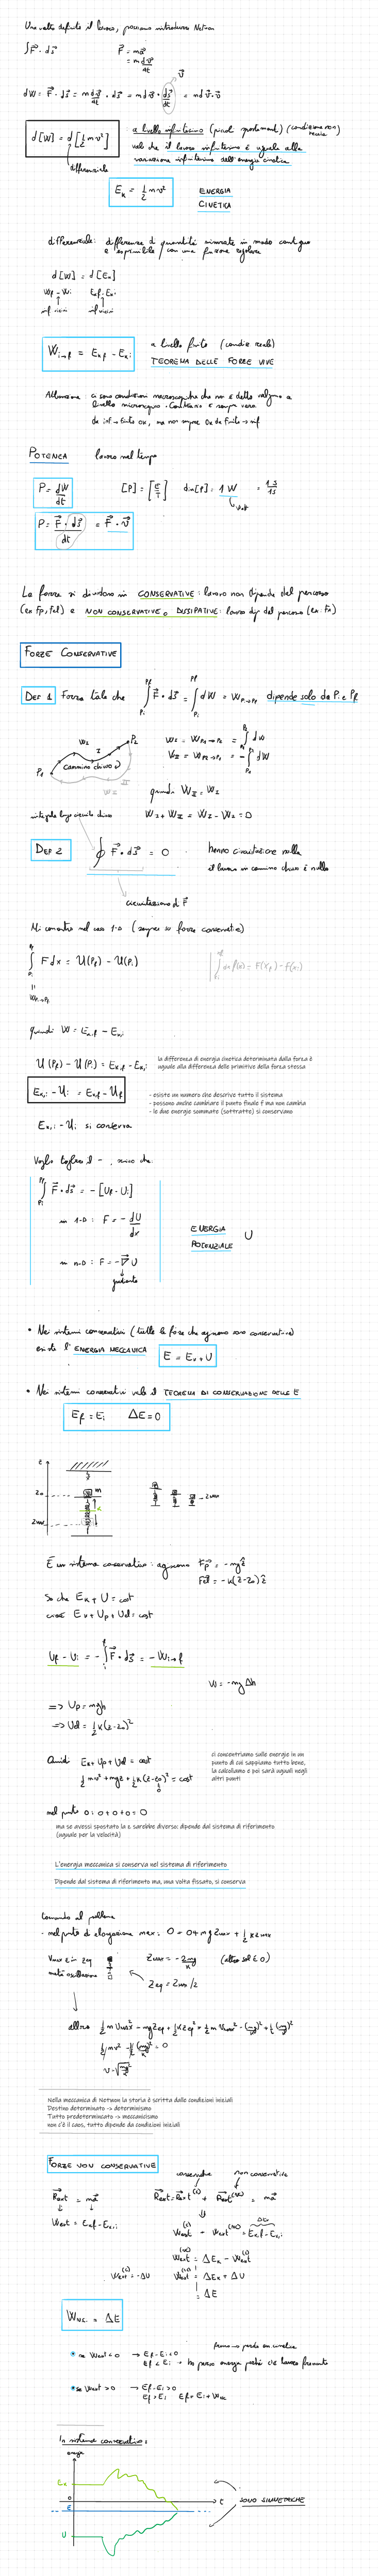 Una volta definito il lavoro, possiamo introdurre Newton
∫F⃗ · ds⃗ F⃗ = ma⃗
= m dv⃗/dt
v⃗
dW = F⃗ · ds⃗ = m dv⃗/dt · ds⃗ = m dv⃗ · ds⃗/dt = m dv⃗·v⃗
d[W] = d[½mv²]
differenziale
: a livello infinitesimo (piccoli spostamenti) (condizione non reale)
vale che il lavoro infinitesimo è uguale alla
variazione infinitesima dell'energia cinetica
E_K = ½mv² ENERGIA
CINETICA
differenziale: differenza di quantità misurate in modo contiguo
e esprimibile con una funzione regolare
d[W] = d[E_K]
W_f - W_i E_Kf - E_Ki
inf vicini inf vicini
W_i→f = E_Kf - E_Ki
a livello finito (condiz reali)
TEOREMA DELLE FORZE VIVE
Attenzione: ci sono condizioni macroscopiche che non è detto valgano a
livello microscopico. Contrario è sempre vero
da inf → finito ok, ma non sempre ok da finito → inf
POTENZA lavoro nel tempo
P = dW/dt [P] = [E/T] dim[P] = 1 W = 1J/1s
watt
P = F⃗ · ds⃗/dt = F⃗ · v⃗
Le forze si dividono in CONSERVATIVE: lavoro non dipende dal percorso
(es Fp, Fel) e NON CONSERVATIVE o DISSIPATIVE: lavoro dip dal percorso (es. Fa)
FORZE CONSERVATIVE
DEF 1 Forza tale che ∫_Pi^Pf F⃗ · ds⃗ = ∫_Pi^Pf dW = W_Pi→Pf dipende solo da Pi e Pf
W_I I P₂
P₁ cammino chiuso
W_II II
W_I = W_P1→P2 = ∫ dW
W_II = W_P2→P1 = -∫ dW
quindi W_I = W_II
integrale lungo circuito chiuso
W_I + W_II = W_I - W_I = 0
DEF 2 ∮ F⃗ · ds⃗ = 0 hanno circuitazione nulla
il lavoro in cammino chiuso è nullo
circuitazione di F⃗
Mi concentro nel caso 1-D (sempre su forze conservative)
∫_Pi^Pf F dx = U(Pf) - U(Pi)
W_Pi→Pf
quindi W = E_K,f - E_K,i
U(Pf) - U(Pi) = E_K,f - E_K,i
la differenza di energia cinetica determinata dalla forza è
uguale alla differenza delle primitive della forza stessa
E_K,i - U_i = E_K,f - U_f
- esiste un numero che descrive tutto il sistema
- possono anche cambiare il punto finale f ma non cambia
- le due energie sommate (sottratte) si conservano
E_K,i - U_i si conserva
Voglio togliere il -, scrivo che:
∫_Pi^Pf F⃗ · ds⃗ = -[U_f - U_i]
in 1-D: F = -dU/dx
ENERGIA
POTENZIALE U
in n-D: F = -∇⃗U
gradiente
• Nei sistemi conservativi (tutte le forze che agiscono sono conservative)
esiste l'ENERGIA MECCANICA E = E_K + U
• Nei sistemi conservativi vale il TEOREMA DI CONSERVAZIONE DELLE E
E_f = E_i ΔE = 0
z
z₀ m
z_MAX
z_MAX
È un sistema conservativo: agiscono F⃗p = -mgẑ
F⃗el = -k(z-z₀)ẑ
So che E_K + U = cost
cioè E_K + Up + Uel = cost
U_f - U_i = -∫_i^f F⃗ · ds⃗ = -W_i→f
W = -mgΔh
=> Up = mgh
=> Uel = ½k(z-z₀)²
Quindi E_K + Up + Uel = cost
½mv² + mgz + ½k(z-z₀)² = cost
0
ci concentriamo sulle energie in un
punto di cui sappiamo tutto bene,
la calcoliamo e poi sarà uguali negli
altri punti
nel punto 0: 0 + 0 + 0 = 0
ma se avessi spostato la z sarebbe diverso: dipende dal sistema di riferimento
(uguale per la velocità)
L'energia meccanica si conserva nel sistema di riferimento
Dipende dal sistema di riferimento ma, una volta fissato, si conserva
Tornando al problema
- nel punto di elongazione max: 0 = 0 + mg z_MAX + ½ k z_MAX
V_MAX è in z_eq
metà oscillazione
z_MAX = -2mg/k (altra sol è 0)
z_eq = z_MAX/2
allora ½mv_MAX² - mg z_eq + ½k z_eq² = ½m v_MAX² - (mg)²/k + ½(mg)²/k
½mv² - ½(mg)²/k = 0
v = √(mg²/k)
Nella meccanica di Netwon la storia è scritta dalle condizioni iniziali
Destino determinato -> determinismo
Tutto predeterminato -> meccanicismo
non c'è il caos, tutto dipende da condizioni iniziali
FORZE NON CONSERVATIVE
conservative non conservative
R⃗ext = ma⃗ R⃗ext = R⃗ext^(c) + R⃗ext^(NC) = ma⃗
ΔE_K
Wext = E_K,f - E_K,i Wext^(c) + Wext^(NC) = E_K,f - E_K,i
Wext^(NC) = ΔE_K - Wext^(c)
Wext^(c) = -ΔU Wext^(NC) = ΔE_K + ΔU
= ΔE
W_N.C. = ΔE
freno → perdo en. cinetica
• se Wext < 0 → E_f - E_i < 0
E_f < E_i → ho perso energia perché c'è lavoro frenante
• se Wext > 0 → E_f - E_i > 0
E_f > E_i E_f = E_i + W_NC
In sistema conservativo:
energia
E_K
0
E
U
t
SONO SIMMETRICHE